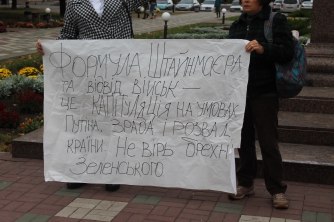 ФОРМУЛА ШТАЙНМАЄРА
ТА ВІДВІД ВІЙСЬК —
ЦЕ КАПІТУЛЯЦІЯ НА УМОВАХ
ПУТІНА, ЗРАДА І РОЗВАЛ
КРАЇНИ. НЕ ВІРЬ БРЕХНІ
ЗЕЛЕНСЬКОГО